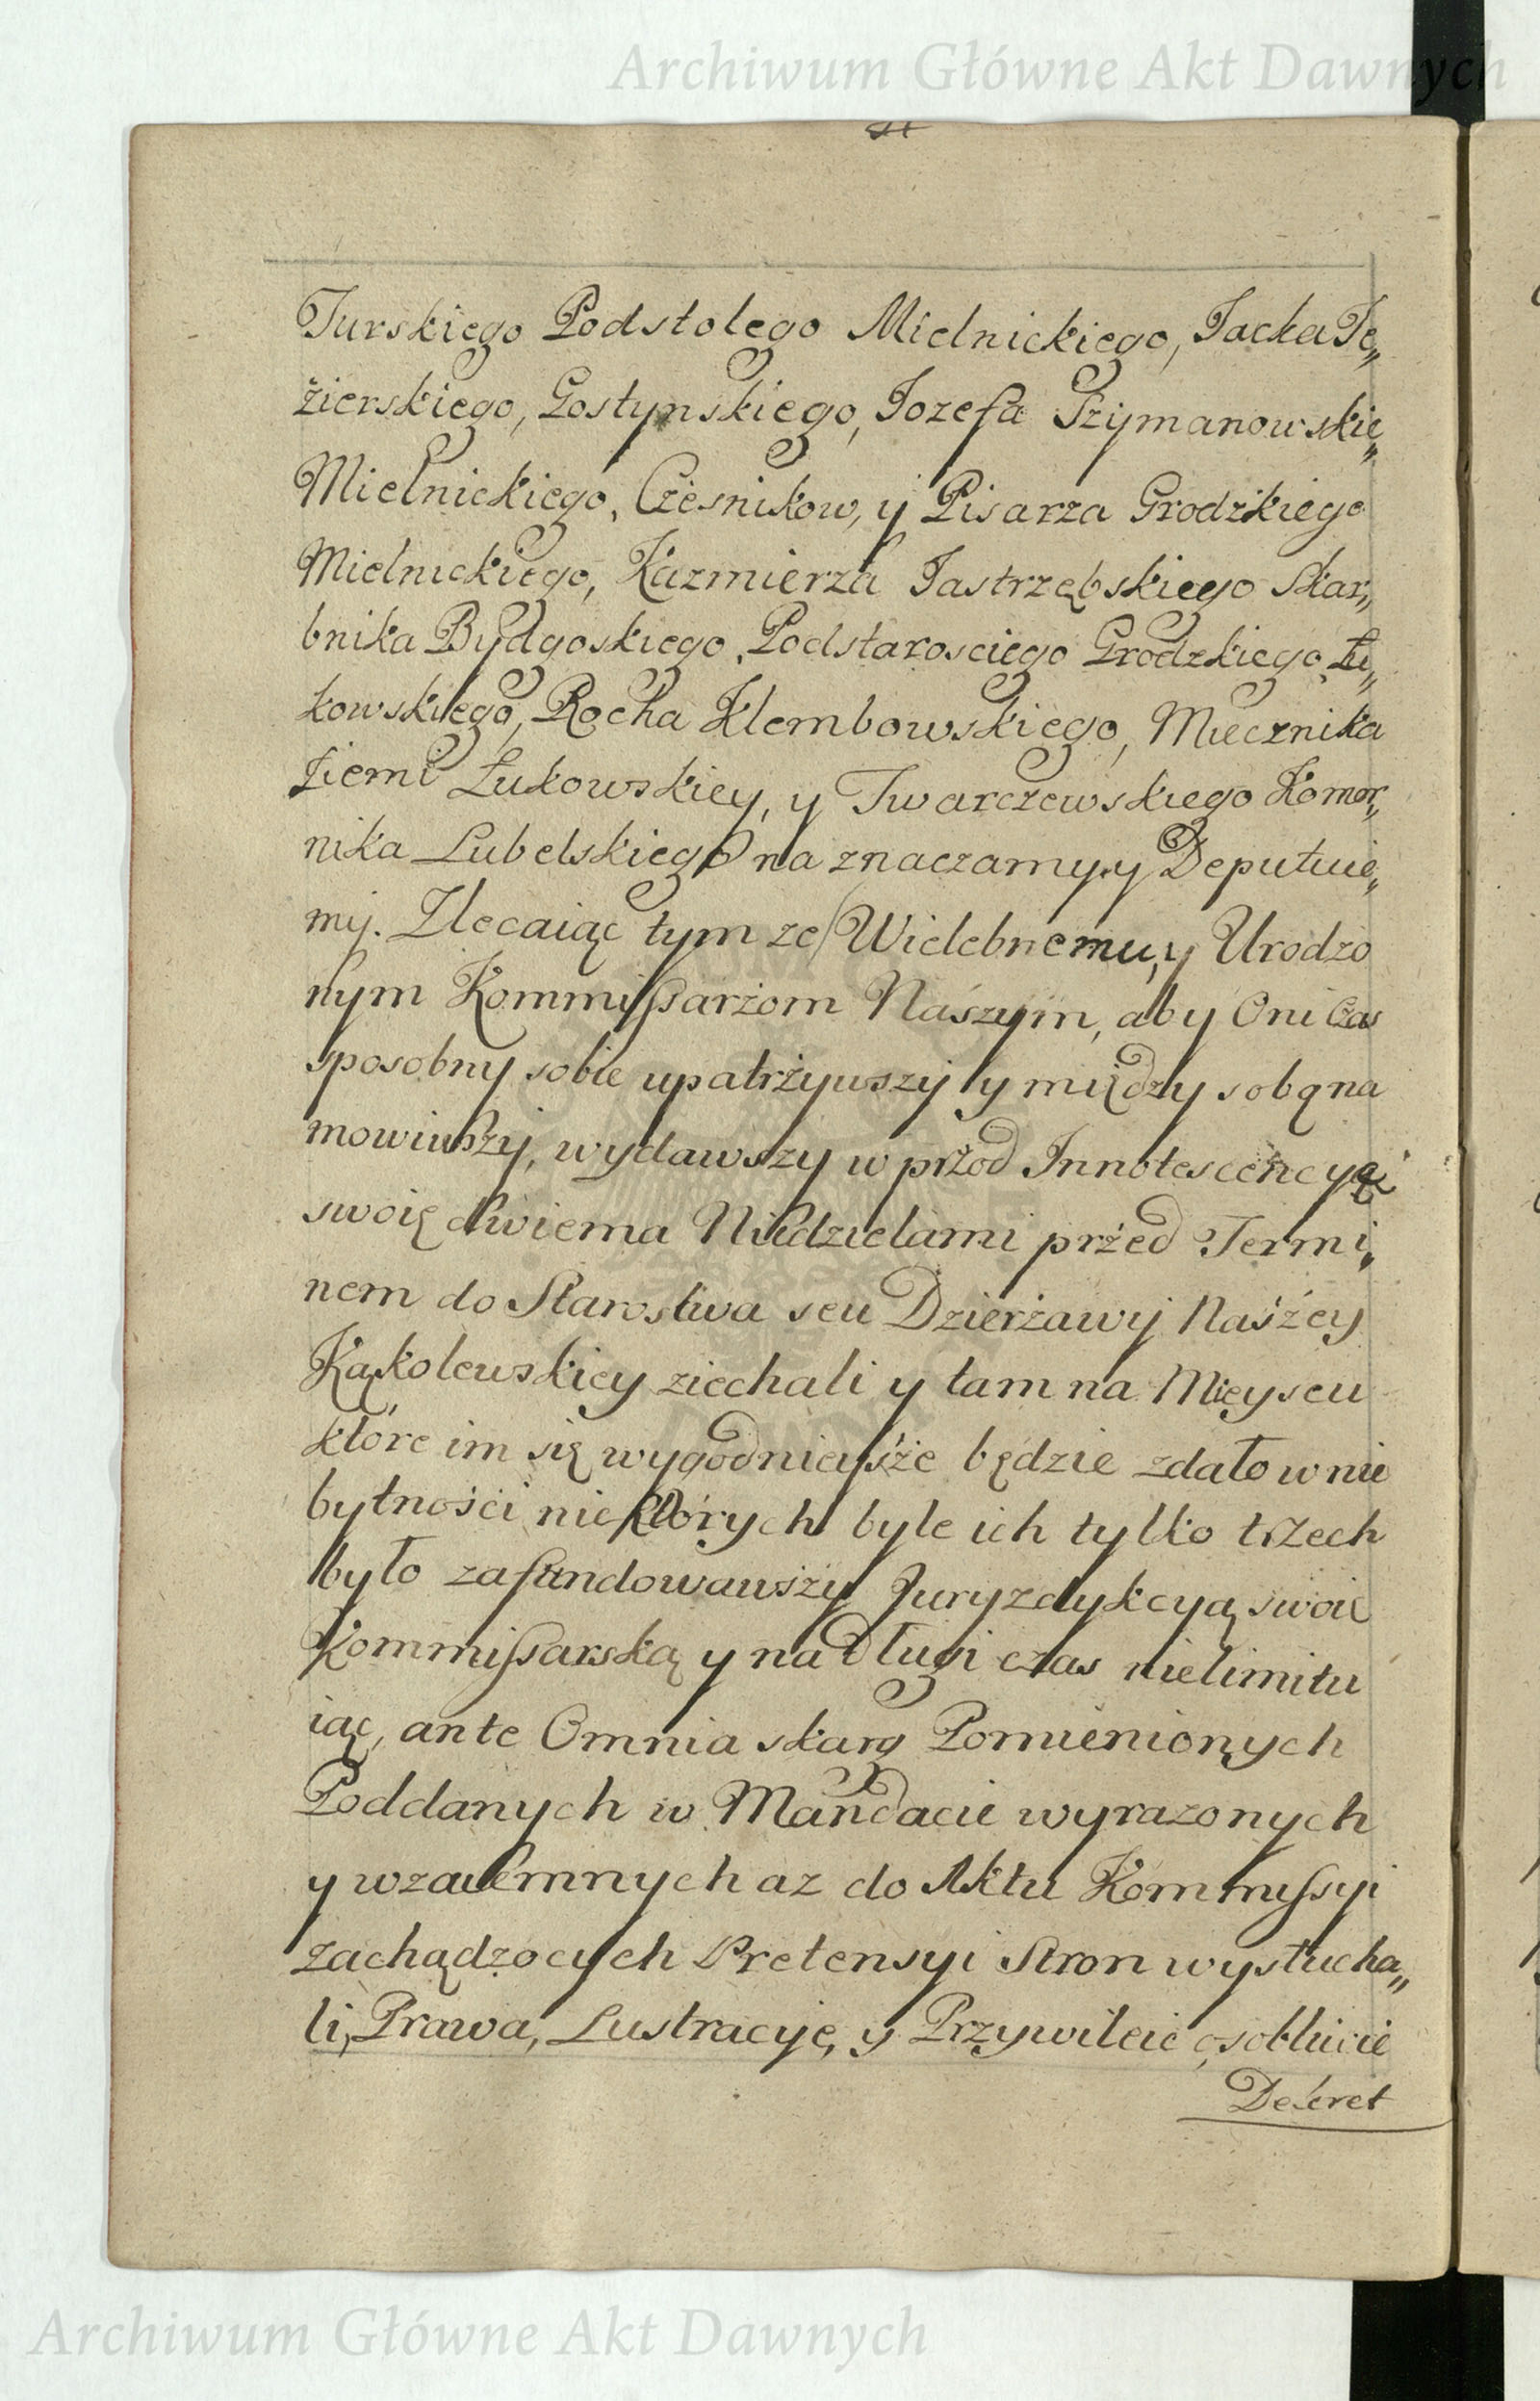 Archiwum Główne Akt Dawnych
Turskiego Podstolego Mielnickiego, Jacka Je„
żierskiego, Gostynskiego, Jozefa Szymanowskie„
Mielnickiego, Cześnikow, y Pisarza Grodzkiego
Mielnickiego, Kazmierza Jastrzębskiego Skar„
bnika Bydgoskiego, Podstarosciego Grodzkiego Łu„
kowskiego, Rocha Klembowskiego, Miecznika
Ziemi Łukowskiey, y Twarczewskiego Komor„
nika Lubelskiego na znaczamy, y Deputuie„
my. Zlecaiąc tym ze Wielebnemu, y Urodzo
nym Kommissarżom Naszym, aby Oni Czas
sposobny sobie upatrżywszy y między sobą na
mowiwszy, wydawszy w przod Innotescencyą
swoię dwiema Niedzielami przed Termi„
nem do Starostwa seu Dzierżawy Naśzey
Kąkolewskiey ziechali y tam na Mieyscu
które im się wygodnieyśże będzie zdało w nie
bytności niektórych byle ich tylko trzech
było zafundowawszy Juryzdykcyą swoię
Kommissarską y na Długi czas nielimitu
iąc, ante Omnia skarg Pomienionych
Poddanych w Mandacie wyrazonych
y wzaiemnych az do Aktu Kommissyi
zachądzocych Pretensyi Stron wysłucha„
li, Prawa, Lustracye, y Przywileie osobliwie
Dekret
Archiwum Główne Akt Dawnych